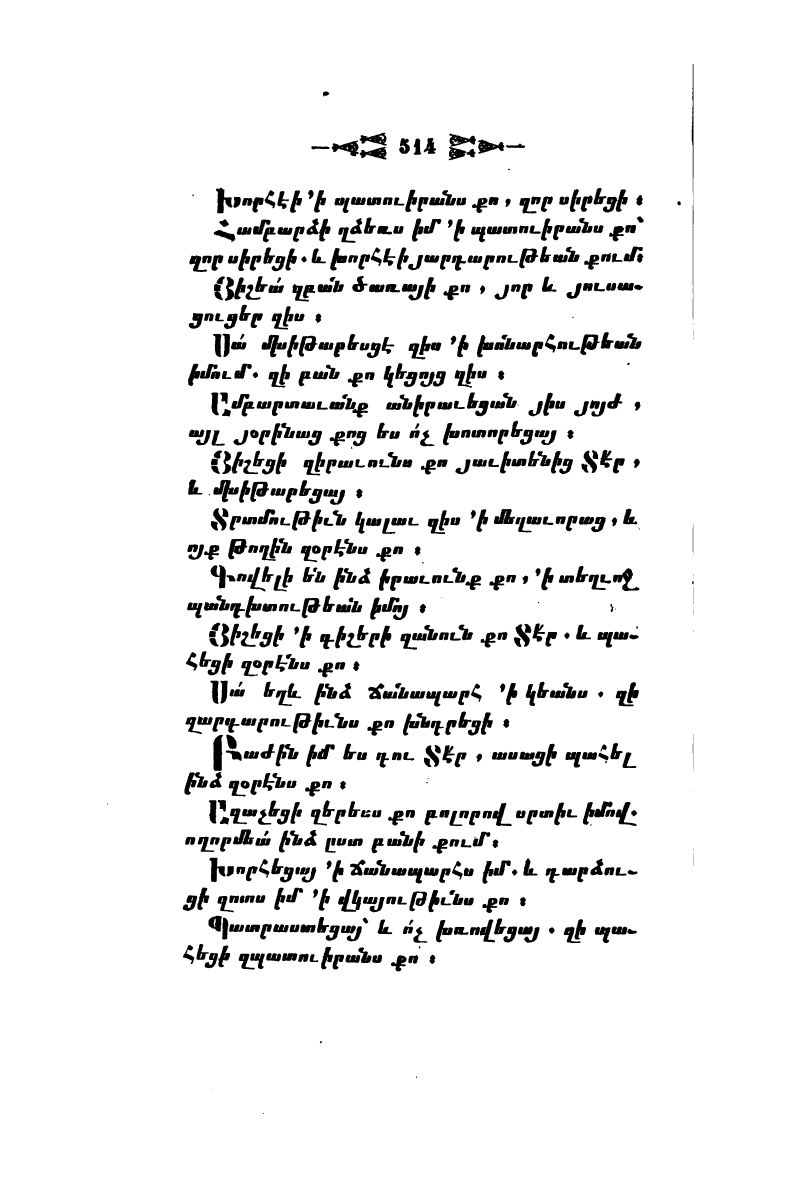 514
Խորհէի ՚ի պատուիրանս քո , զոր սիրեցի ։
Համբարձի զձեռս իմ ՚ի պատուիրանս քո՝
զոր սիրեցի . և խորհէի յարդարութեան քում։
Յիշեա՛ զբան ծառայի քո , յոր և յուսա-
ցուցեր զիս ։
Սա՛ մխիթարեսցէ զիս ՚ի խոնարհութեան
իմում . զի բան քո կեցոյց զիս ։
Ամբարտաւանք անիրաւեցան յիս յոյժ ,
այլ յօրինաց քոց ես ո՛չ խոտորեցայ ։
Յիշեցի զիրաւունս քո յաւիտենից Տէր ,
և մխիթարեցայ ։
Տրտմութիւն կալաւ զիս ՚ի մեղաւորաց , և
ոյք թողին զօրէնս քո ։
Գովելի են ինձ իրաւունք քո , ՚ի տեղւոջ
պանդխտութեան իմոյ ։
Յիշեցի ՚ի գիշերի զանուն քո Տէր . և պա-
հեցի զօրէնս քո ։
Սա՛ եղև ինձ ճանապարհ ՚ի կեանս . զի
զարդարութիւնս քո խնդրեցի ։
Բաժին իմ ես դու Տէր , ասացի պահել
ինձ զօրէնս քո ։
Աղաչեցի զերեսս քո բոլորով սրտիւ իմով .
ողորմեա՛ ինձ ըստ բանի քում ։
Խորհեցայ ՚ի ճանապարհս իմ . և դարձու-
ցի զոտս իմ ՚ի վկայութիւնս քո ։
Պատրաստեցայ՝ և ո՛չ խռովեցայ . զի պա-
հեցի զպատուիրանս քո ։